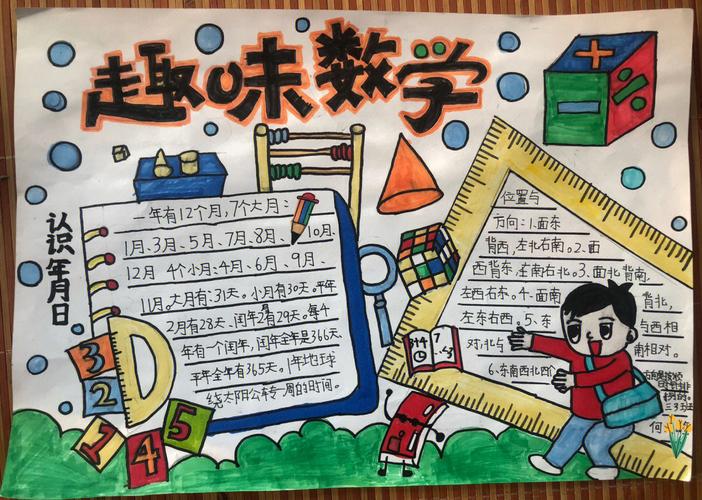 趣味数学
认识年月日
一年有12个月,7个大月:
1月、3月、5月、7月、8月、10月、
12月 4个小月:4月、6月、9月、
11月。大月有:31天。小月有30天。平年
2月有28天、闰年2月有29天。每4
年有一个闰年,闰年全年是366天、
平年全年有365天。1年地球
绕太阳公转一周的时间。
位置与
方向:1.面东
背西,左北右南。2.面
西背东,左南右北。3.面北背南,
左西右东。4.面南 背北,
左东右西。5.东 与西相
对,北与 南相对。
6.东南西北四个
方向是按顺
时针排
列的。
三3班
何
3
2
1
4
5
+
−
÷